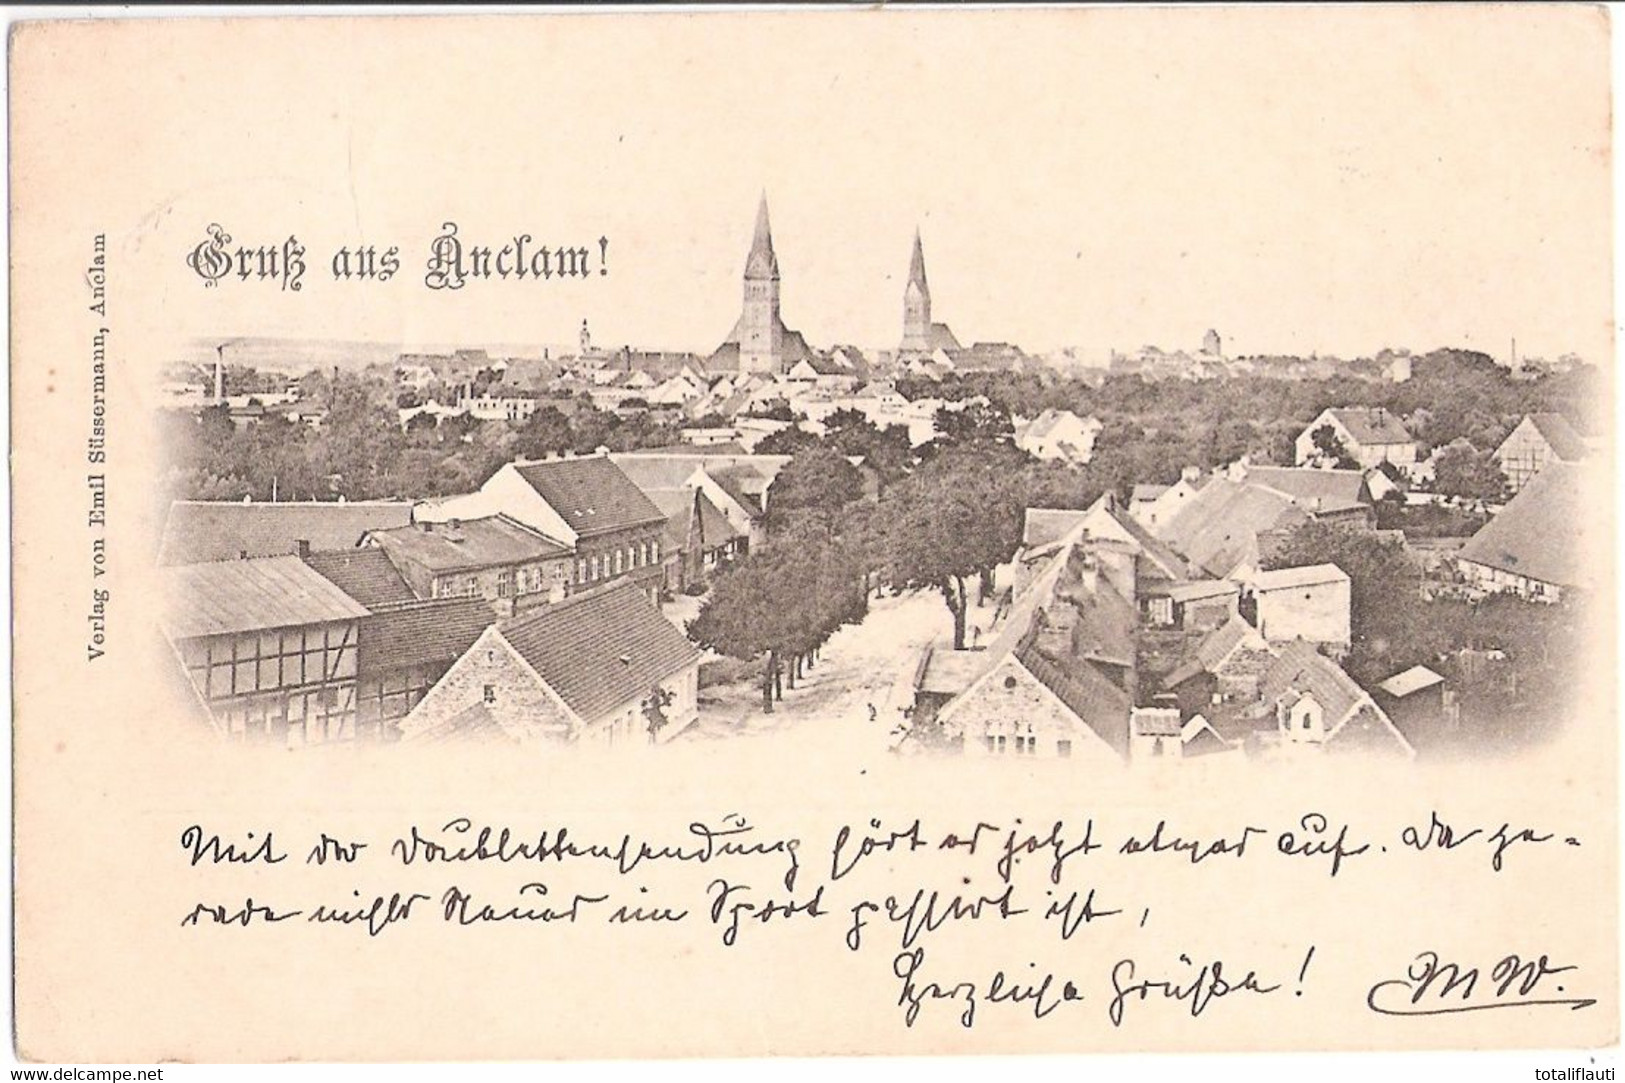 Gruß aus Anclam!
Verlag von Emil Süssermann, Anclam
Mit der Doublettensendung hört es jetzt etwas auf. Da ge-
rade nichts Neues im Sport passirt ist,
Herzliche Grüße! MW.
www.delcampe.net
totaliflauti